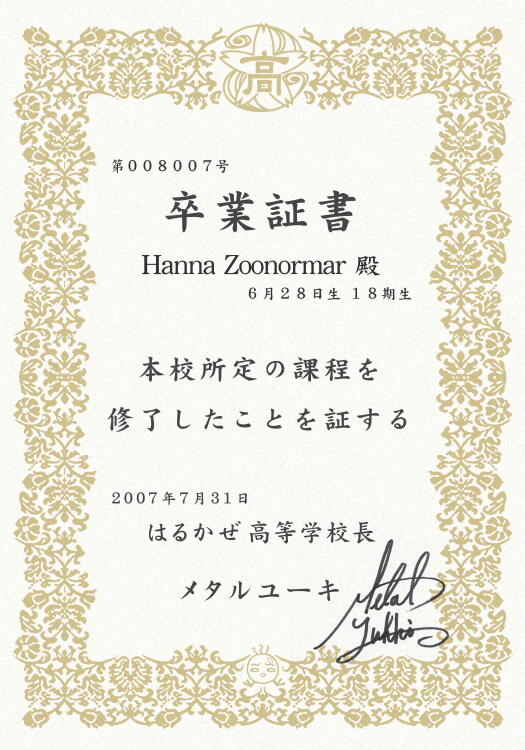 高
第００８００７号
卒業証書
Hanna Zoonormar 殿
６月２８日生 １８期生
本校所定の課程を
修了したことを証する
２００７年７月３１日
はるかぜ高等学校長
メタルユーキ
Metal
Yukki